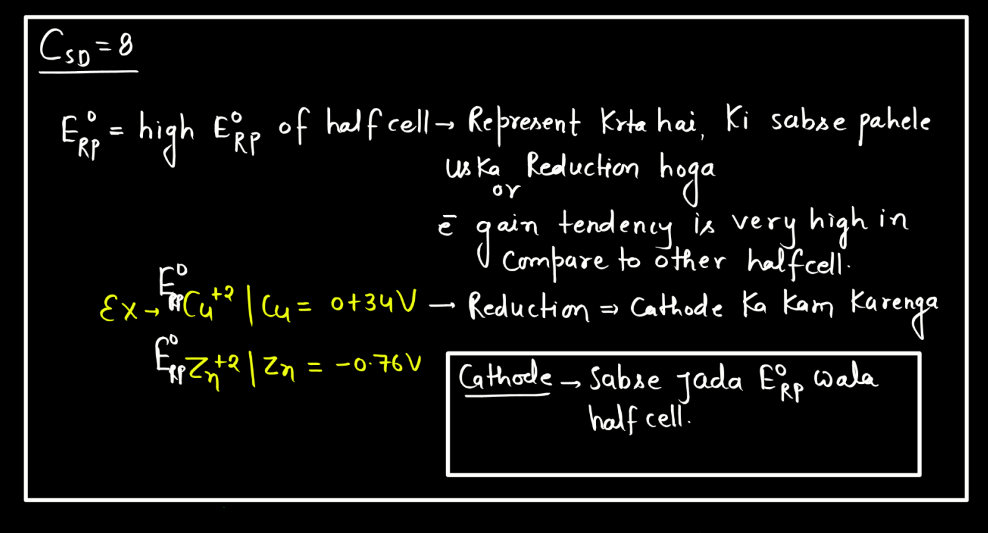 C_SD = 8
E°_RP = high E°_RP of half cell → Represent Krta hai, Ki sabse pahele
us Ka Reduction hoga
or
ē gain tendency is very high in
Compare to other half cell.
Ex → E°_RP Cu⁺² | Cu = 0+34V → Reduction ⇒ Cathode Ka Kam Karenga
E°_RP Zn⁺² | Zn = -0.76V
Cathode → Sabse jada E°_RP wala
half cell.